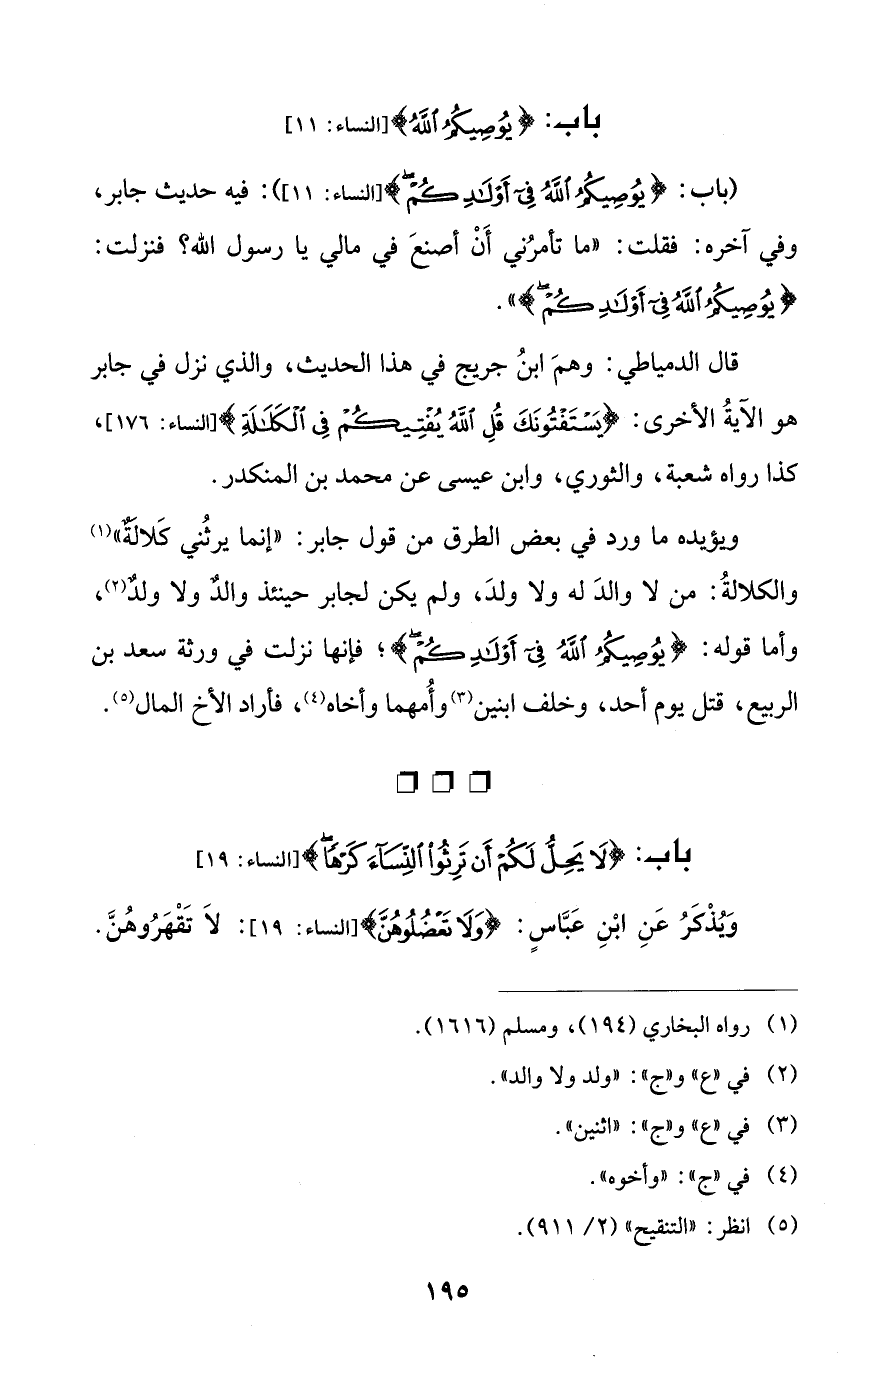 باب: ﴿يُوصِيكُمُ ٱللَّهُ﴾[النساء: ١١]
(باب: ﴿يُوصِيكُمُ ٱللَّهُ فِىٓ أَوْلَٰدِكُمْۖ﴾[النساء: ١١]): فيه حديث جابر،
وفي آخره: فقلت: «ما تأمرُني أَنْ أصنعَ في مالي يا رسول الله؟ فنزلت:
﴿يُوصِيكُمُ ٱللَّهُ فِىٓ أَوْلَٰدِكُمْۖ﴾».
قال الدمياطي: وهمَ ابنُ جريج في هذا الحديث، والذي نزل في جابر
هو الآيةُ الأخرى: ﴿يَسْتَفْتُونَكَ قُلِ ٱللَّهُ يُفْتِيكُمْ فِى ٱلْكَلَٰلَةِ﴾[النساء: ١٧٦]،
كذا رواه شعبة، والثوري، وابن عيسى عن محمد بن المنكدر.
ويؤيده ما ورد في بعض الطرق من قول جابر: «إنما يرثُني كَلالَةٌ»(١)
والكلالةُ: من لا والدَ له ولا ولدَ، ولم يكن لجابر حينئذ والدٌ ولا ولدٌ(٢)،
وأما قوله: ﴿يُوصِيكُمُ ٱللَّهُ فِىٓ أَوْلَٰدِكُمْۖ﴾؛ فإنها نزلت في ورثة سعد بن
الربيع، قتل يوم أحد، وخلف ابنين(٣)وأُمهما وأخاه(٤)، فأراد الأخ المال(٥).
باب: ﴿لَا يَحِلُّ لَكُمْ أَن تَرِثُوا۟ ٱلنِّسَآءَ كَرْهًاۖ﴾[النساء: ١٩]
وَيُذْكَرُ عَنِ ابْنِ عَبَّاسٍ: ﴿وَلَا تَعْضُلُوهُنَّ﴾[النساء: ١٩]: لاَ تَقْهَرُوهُنَّ.
(١) رواه البخاري (١٩٤)، ومسلم (١٦١٦).
(٢) في «ع» و«ج»: «ولد ولا والد».
(٣) في «ع» و«ج»: «اثنين».
(٤) في «ج»: «وأخوه».
(٥) انظر: «التنقيح» (٢/ ٩١١).
١٩٥